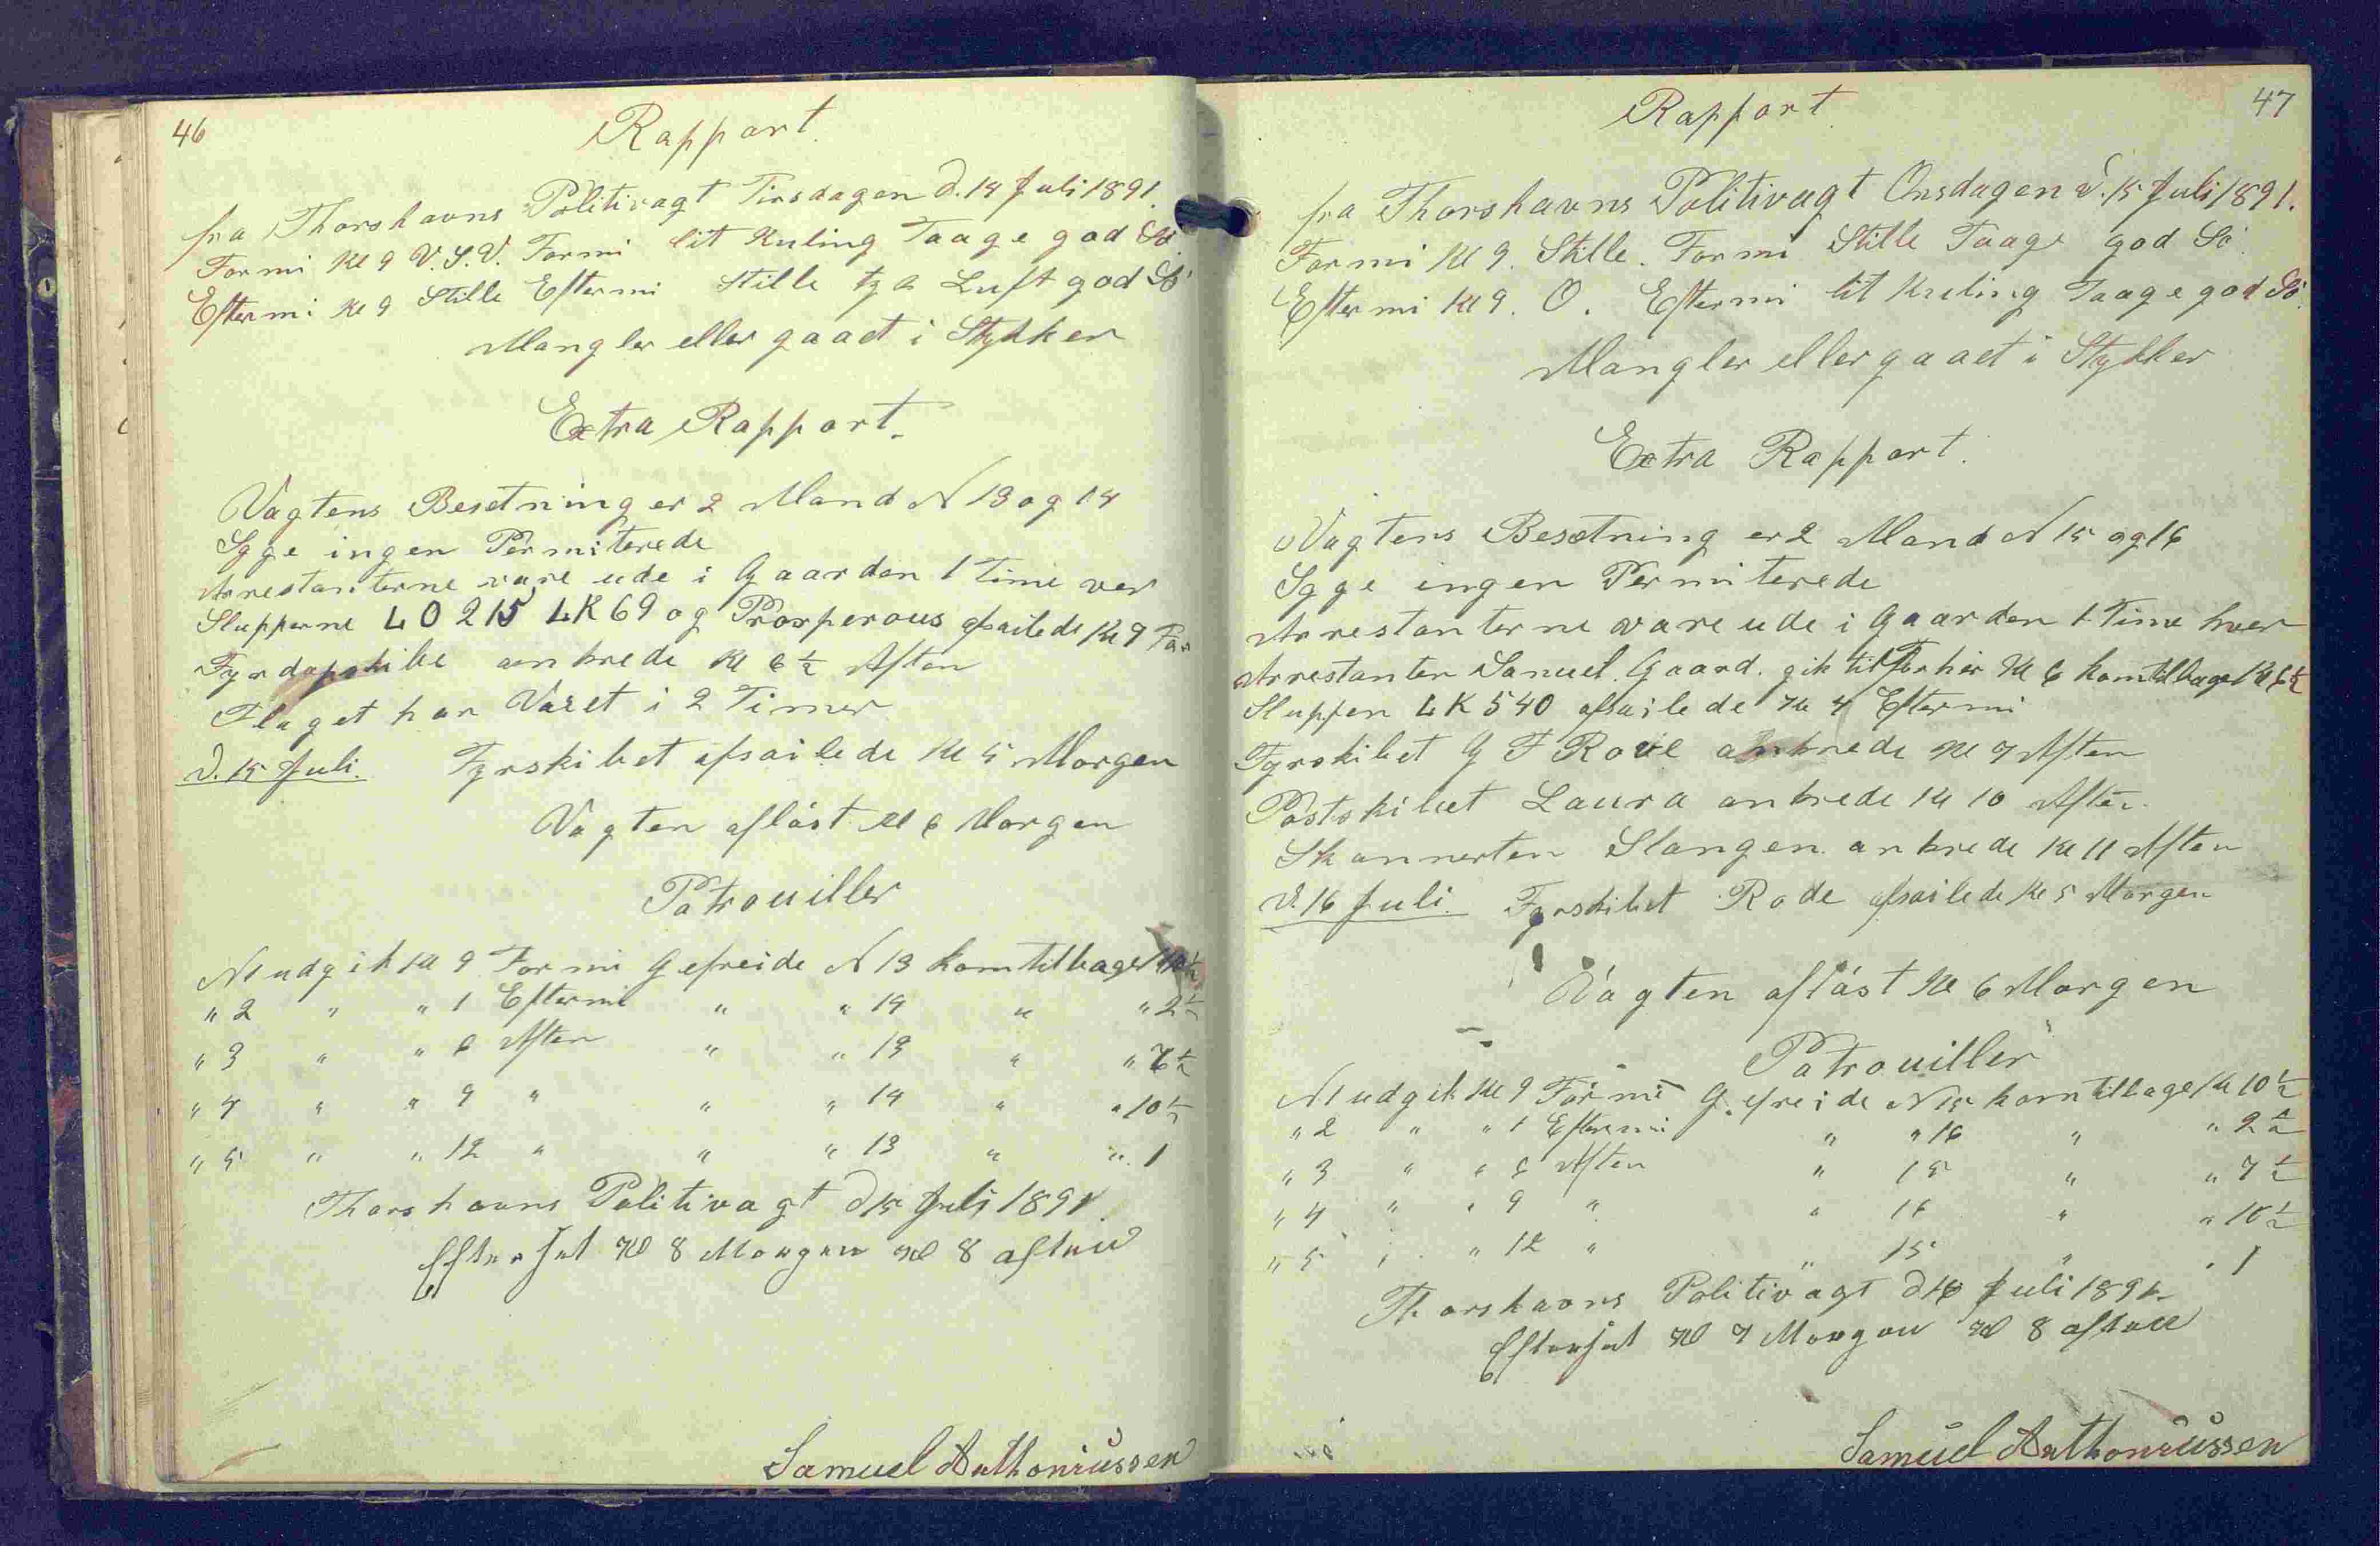 46
Rapport.
fra Thorshavns Politivagt Tirsdagen d. 14 Juli 1891.
Formi Kl 9 V.S.V. Formi lit Kuling Taage god Sö
Eftermi Kl 9 Stille Eftermi Stille tyk Luft god Sö
Mangler eller gaaet i Stykker
Extra Rapport.
Vagtens Besetning er 2 Mand N 13 og 14
Syge ingen Permiterede
Arrestanterne vare ude i Gaarden 1 Time ver
Slupperne LO 215 LK 69 og Prosperous afsailede Kl 9 For
ankrede Kl 6½ Aften
Flaget har Været i 2 Timer
d. 15 Juli. Fyrskibet afsailede Kl 5 Morgen
Vagten aflöst Kl 6 Morgen
Patrouiller
N1 udgik Kl 9 Formi Gefreide N 13 kom tilbage Kl 10½
" 2 " " 1 Eftermi " " 14 " " 2½
" 3 " " 6 Aften " " 13 " " 7½
" 4 " " 9 " " " 14 " " 10½
" 5 " " 12 " " " 13 " " 1
Thorshavns Politivagt d 15 Juli 1891.
Efterset Kl 8 Morgen Kl 8 aften
Samuel Anthoniussen
47
Rapport
fra Thorshavns Politivagt Onsdagen d. 15 Juli 1891.
Formi Kl 9. Stille. Formi Stille Taage god Sö.
Eftermi Kl 9. O. Eftermi lit Kuling Taage god Sö.
Mangler eller gaaet i Stykker
Extra Rapport.
Vagtens Besætning er 2 Mand N 15 og 16
Syge ingen Permiterede
Arrestanterne vare ude i Gaarden 1 Time hver
Arrestanten Samuel. Gaard. gik til Forhör Kl 6 kom tilbage Kl 6½
Sluppen LK 540 afsailede Kl 4 Eftermi
Fyrskibet G F Rode ankrede Kl 7 Aften
Postskibet Laura ankrede Kl 10 Aften.
Skonnerten Slangen ankrede Kl 11 Aften
d. 16 Juli. Fyrskibet Rode afsailede Kl 5 Morgen
Vagten aflöst Kl 6 Morgen
Patrouiller
N1 udgik Kl 9 Formi Gefreide N 15 kom tilbage Kl 10½
" 2 " " 1 Eftermi " " 16 " " 2½
" 3 " " 6 Aften " 15 " " 7½
" 4 " " 9 " " 16 " " 10½
" 5 " " 12 " " 15 " " 1
Thorshavns Politivagt d 16 Juli 1891.
Efterset Kl 7 Morgen Kl 8 aften
Samuel Anthoniussen